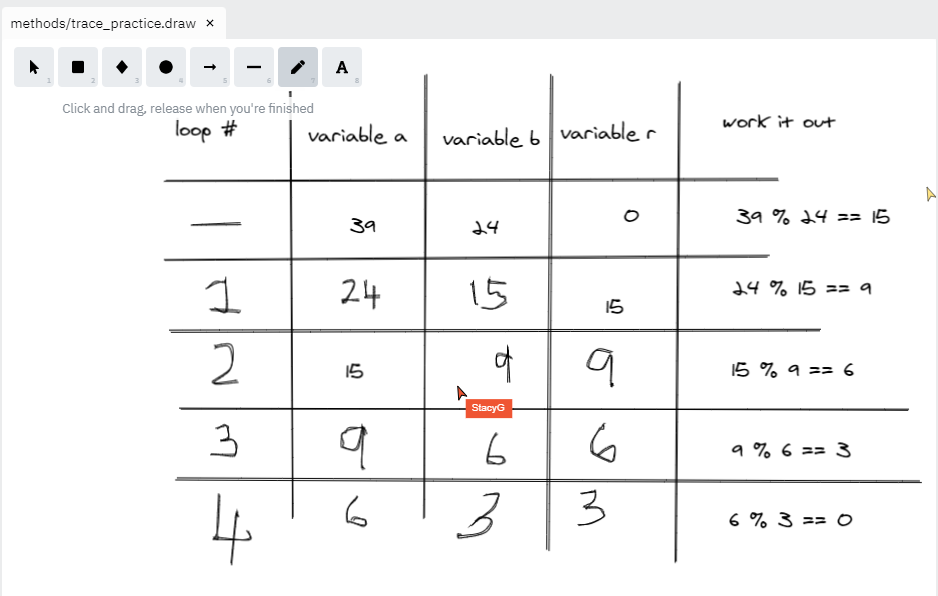 methods/trace_practice.draw ×
1 2 3 4 5 6 7 A 8
Click and drag, release when you're finished
loop # variable a variable b variable r work it out
— 39 24 0 39 % 24 == 15
1 24 15 15 24 % 15 == 9
2 15 9 9 15 % 9 == 6
StacyG
3 9 6 6 9 % 6 == 3
4 6 3 3 6 % 3 == 0